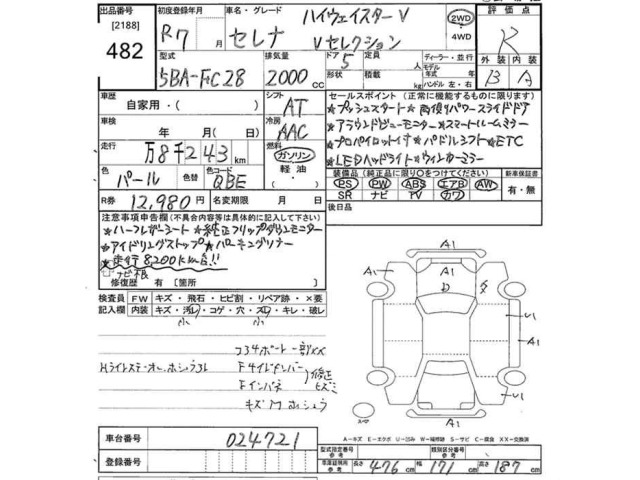 出品番号 初度登録年月 車名・グレード ハイウェイスターV 2WD 評価点
[2188] R7 月 セレナ Vセレクション 4WD R
482 型式 排気量 ドア 定員 ディーラー・並行 外装 内装
5BA-FC28 2000 CC 5 形状 積載 人 kg モデル年式 年 ハンドル 左・右 B A
車歴 シフト セールスポイント (正常に機能するものに限ります)
自家用・( ) AT ★プッシュスタート★両側パワースライドドア
車検 冷房 ★アラウンドビューモニター★スマートルームミラー
年 月( 日) AAC ★プロパイロット付★パドルシフト★ETC
走行 万8千243km 燃料 ガソリン 軽油・( ) ★LEDヘッドライト★ウィンカーミラー
色 パール 色替 色コード QBE 装備 (純正品に限り○をつけてください) 新車保証書
PS PW ABS エアB AW 有・無
SR ナビ TV カワ
R券 12,980円 名変期限 月 日 後日品
注意事項申告欄 (不具合内容等は具体的に記入して下さい)
★ハーフレザーシート★純正フリップダウンモニター
★アイドリングストップ★
★走行8200km台!!
ナビ
修復歴 有 〔箇所 〕
検査員 記入欄 FW キズ・飛石・ヒビ割・リペア跡・×要
内装 キズ・汚レ・コゲ・穴・ズレ・キレ・破レ
小 小
A1
A1 A1
U1
A1
U1
A1
車台番号 024721
A−キズ E−エクボ U−凹み W−補修跡 S−サビ C−腐食 XX−交換済
登録番号 型式指定番号 参考 類別区分番号 参考
車庫証明用 参考 長さ 476 cm 幅 171 cm 高さ 187 cm